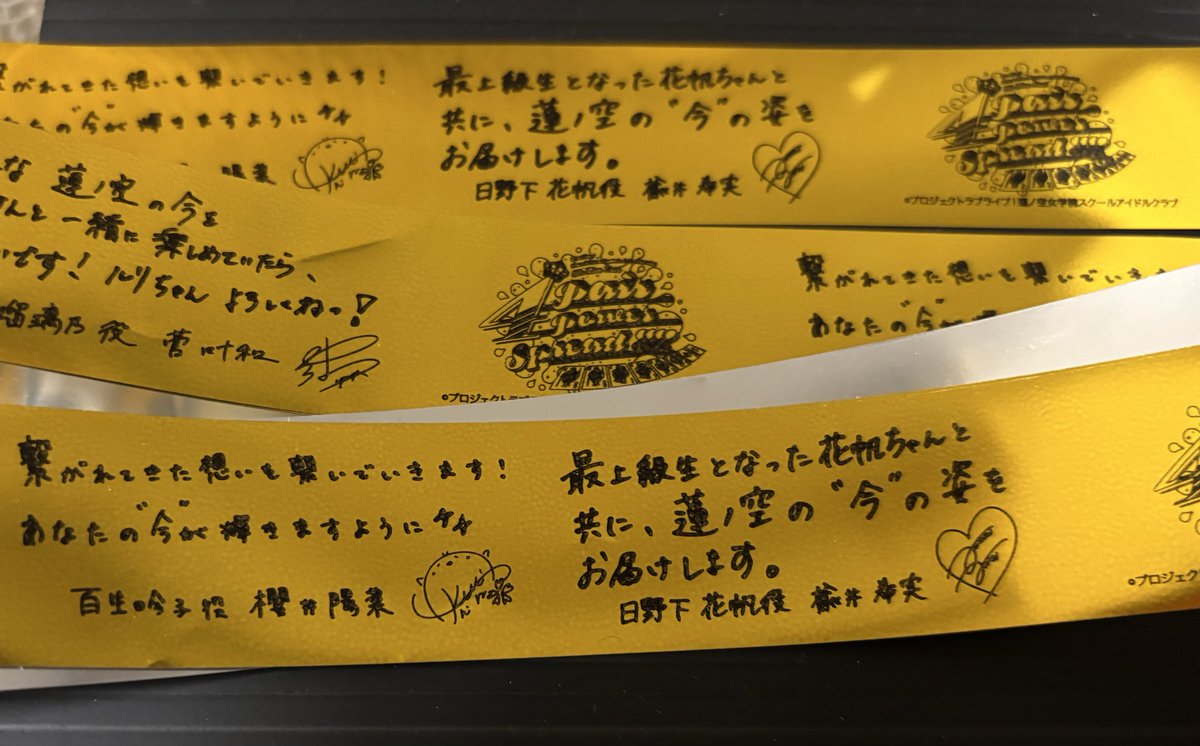 がれてきた想いも繋いでいきます！
"今"が輝きますように
陽菜
最上級生となった花帆ちゃんと
共に、蓮ノ空の"今"の姿を
お届けします。
日野下 花帆役 楡井希実
4
Pair
Power
Spread!!!!
©プロジェクトラブライブ！蓮ノ空女学院スクールアイドルクラブ
な 蓮ノ空の今を
さんと一緒に楽しめていたら、
です！ルリちゃん よろしくねっ！
瑠璃乃役 菅叶和
4
Pair
Power
Spread!!!!
©プロジェクトラブ
繋がれてきた想いも繋いでいきま
あなたの"今"が
繋がれてきた想いも繋いでいきます！
あなたの"今"が輝きますように
百生吟子役 櫻井陽菜
最上級生となった花帆ちゃんと
共に、蓮ノ空の"今"の姿を
お届けします。
日野下 花帆役 楡井希実
©プロジェク